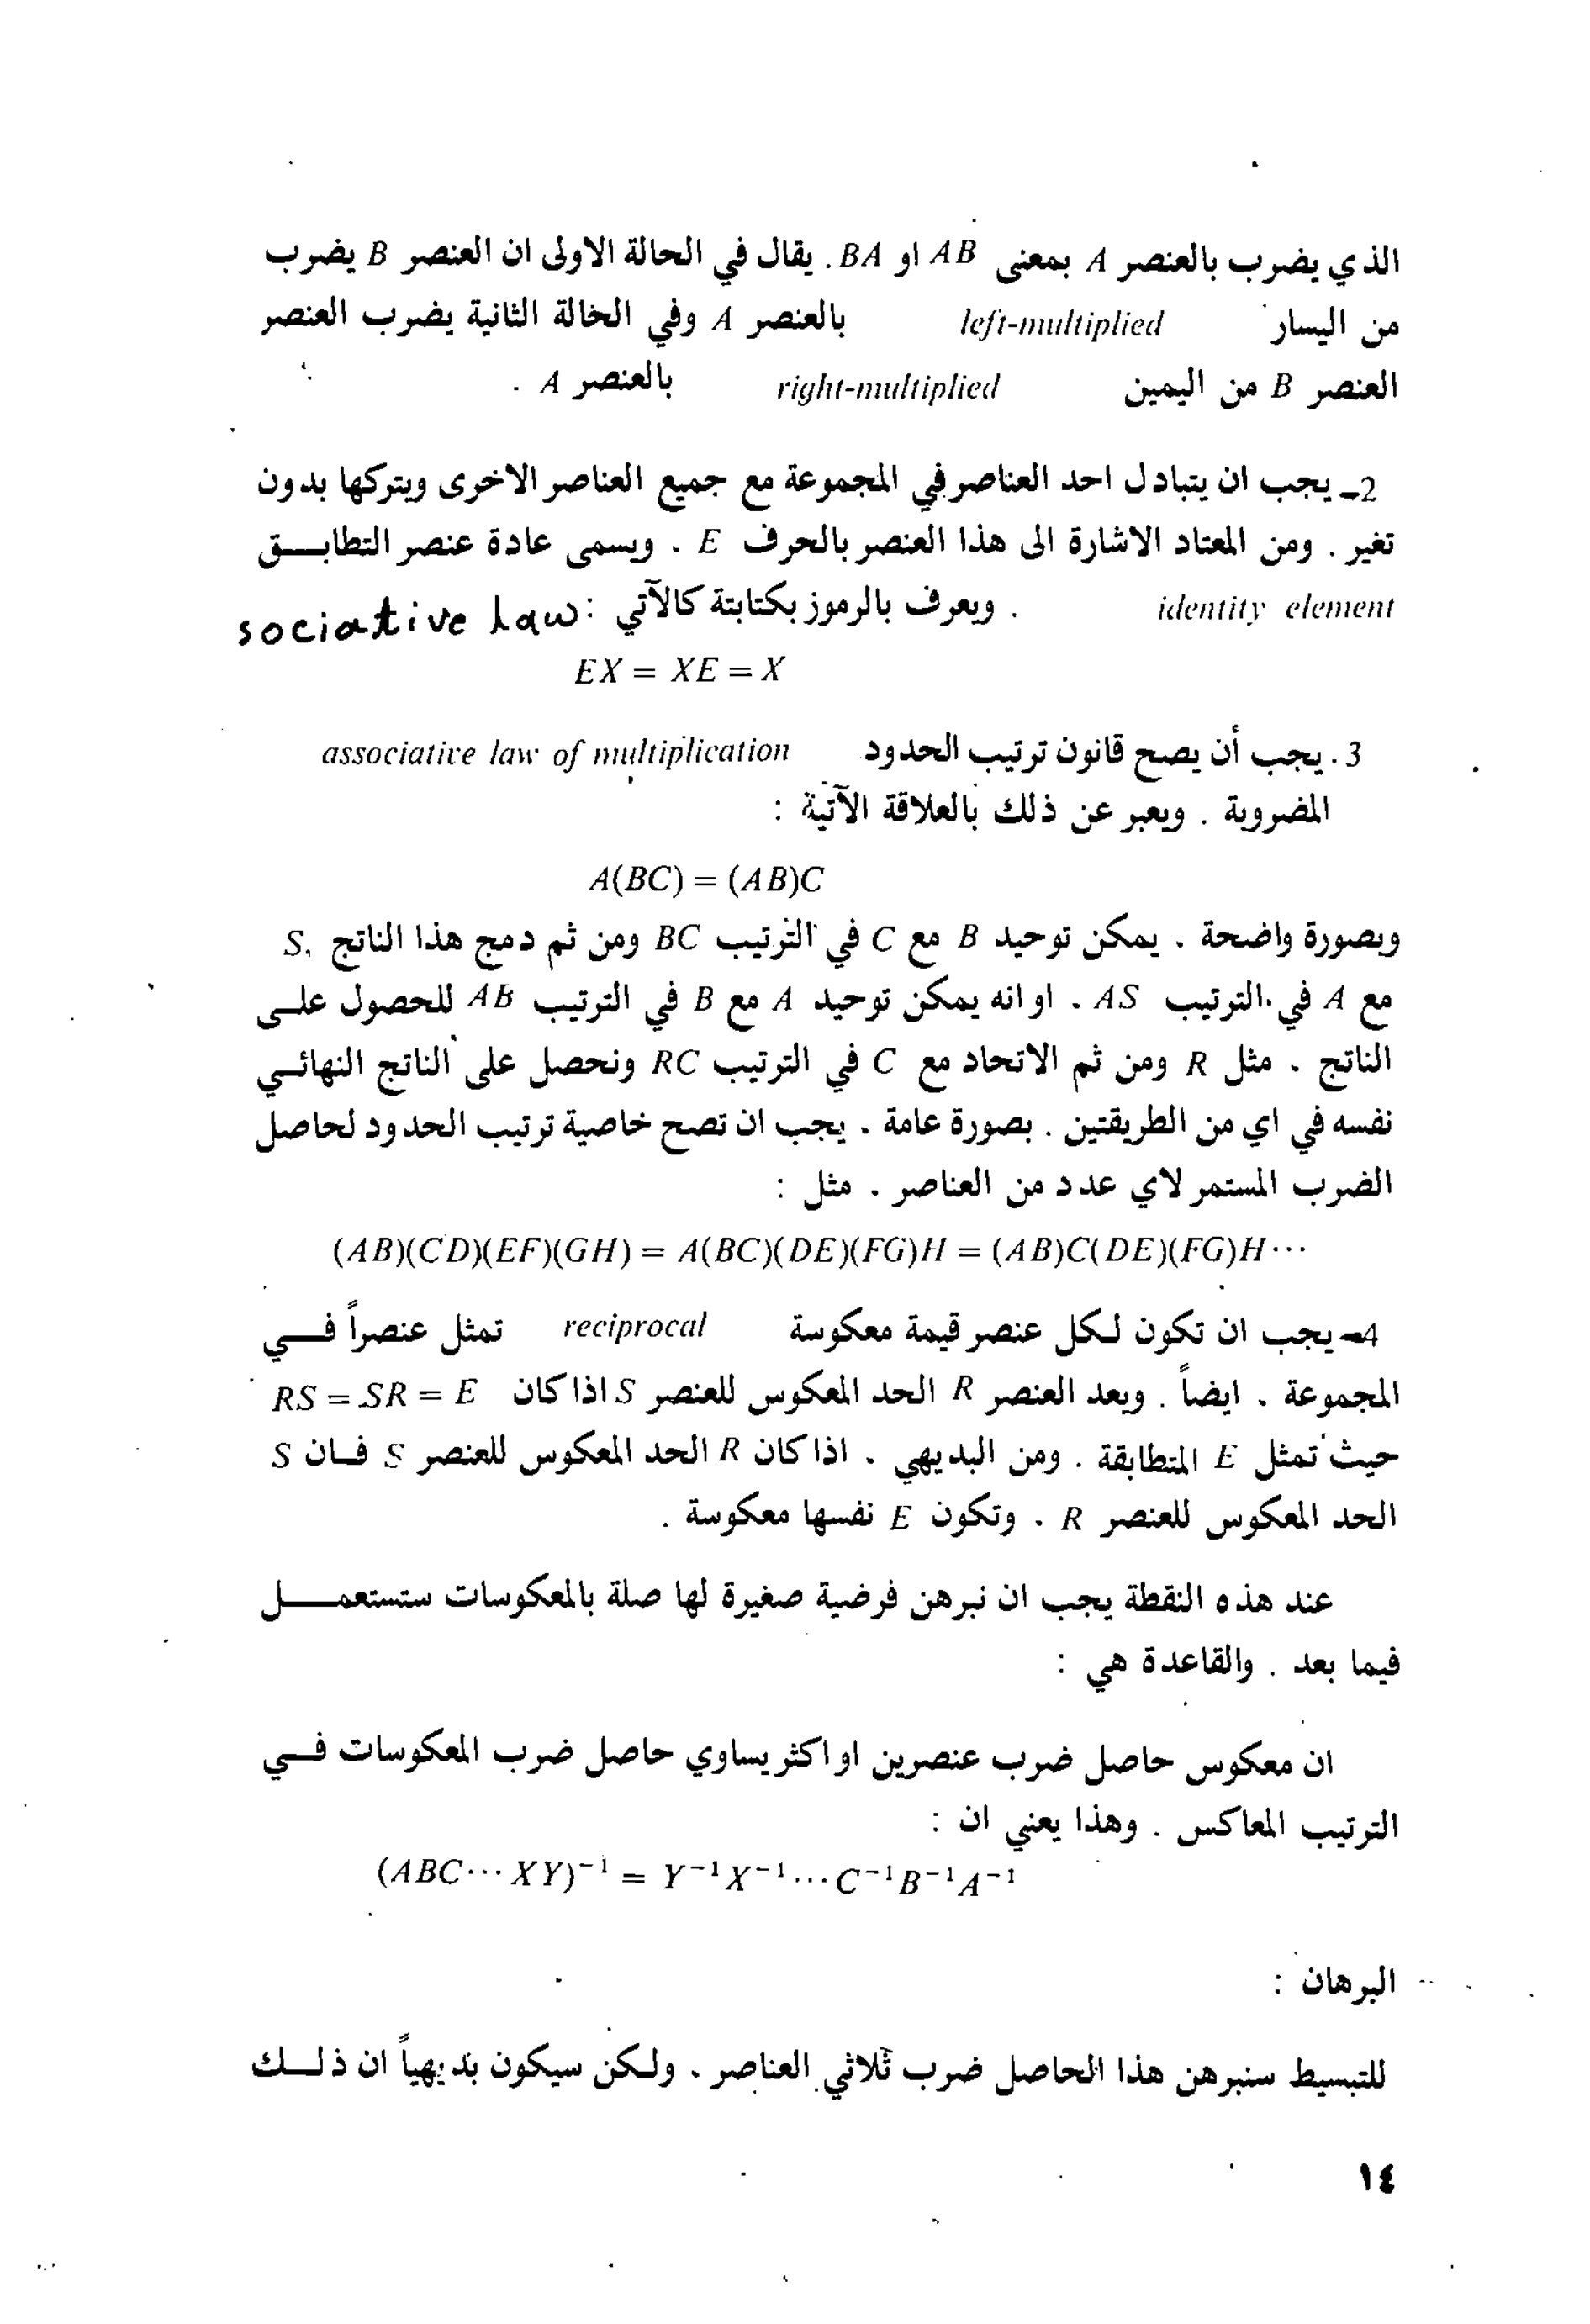 الذي يضرب بالعنصر A بمعنى AB او BA . يقال في الحالة الاولى ان العنصر B يضرب
من اليسار left-multiplied بالعنصر A وفي الخالة الثانية يضرب العنصر
العنصر B من اليمين right-multiplied بالعنصر A .
2- يجب ان يتبادل احد العناصر في المجموعة مع جميع العناصر الاخرى ويتركها بدون
تغير . ومن المعتاد الاشارة الى هذا العنصر بالحرف E . ويسمى عادة عنصر التطابــق
identity element . ويعرف بالرموز بكتابتة كالآتي : sociative law
EX = XE = X
3 . يجب أن يصح قانون ترتيب الحدود associative law of multiplication
المضروبة . ويعبر عن ذلك بالعلاقة الآتية :
A(BC) = (AB)C
وبصورة واضحة . يمكن توحيد B مع C في الترتيب BC ومن ثم دمج هذا الناتج S,
مع A في الترتيب AS . او انه يمكن توحيد A مع B في الترتيب AB للحصول علــى
الناتج . مثل R ومن ثم الاتحاد مع C في الترتيب RC ونحصل على الناتج النهائــي
نفسه في اي من الطريقتين . بصورة عامة . يجب ان تصح خاصية ترتيب الحدود لحاصل
الضرب المستمر لاي عدد من العناصر . مثل :
(AB)(CD)(EF)(GH) = A(BC)(DE)(FG)H = (AB)C(DE)(FG)H···
4- يجب ان تكون لكل عنصر قيمة معكوسة reciprocal تمثل عنصراً فــي
المجموعة . ايضاً . ويعد العنصر R الحد المعكوس للعنصر S اذا كان RS = SR = E
حيث تمثل E المتطابقة . ومن البديهي . اذا كان R الحد المعكوس للعنصر S فــان S
الحد المعكوس للعنصر R . وتكون E نفسها معكوسة .
عند هذه النقطة يجب ان نبرهن فرضية صغيرة لها صلة بالمعكوسات ستستعمــل
فيما بعد . والقاعدة هي :
ان معكوس حاصل ضرب عنصرين او اكثر يساوي حاصل ضرب المعكوسات فــي
الترتيب المعاكس . وهذا يعني ان :
(ABC···XY)⁻¹ = Y⁻¹X⁻¹···C⁻¹B⁻¹A⁻¹
البرهان :
للتبسيط سنبرهن هذا الحاصل ضرب ثلاثي العناصر . ولكن سيكون بديهياً ان ذلــك
١٤